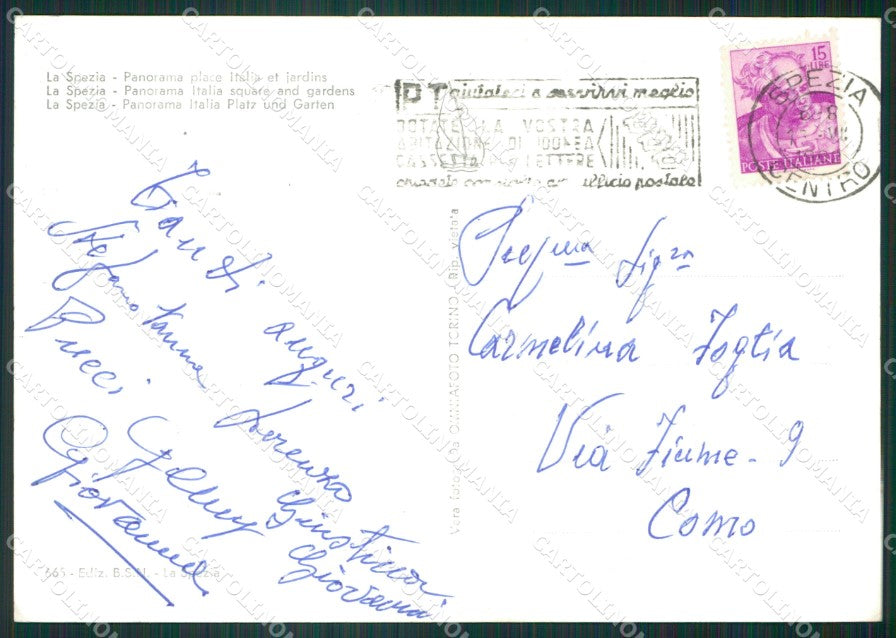 La Spezia - Panorama place Italia et jardins
La Spezia - Panorama Italia square and gardens
La Spezia - Panorama Italia Platz und Garten
PT aiutateci a servirvi meglio
DOTATE LA VOSTRA
ABITAZIONE DI IDONEA
CASSETTA LETTERE
ufficio postale
15
LIRE
POSTE ITALIANE
SPEZIA
CENTRO
Tanti auguri
Stefano
Pucci
Lorenzo
Giovanna
Giovanni
Vera foto
OMNIAFOTO TORINO
Rip. vietata
Carmelina Foglia
Via Fiume - 9
Como
665 - Ediz. B.S.N. - La Spezia
CARTOLINOMANIA